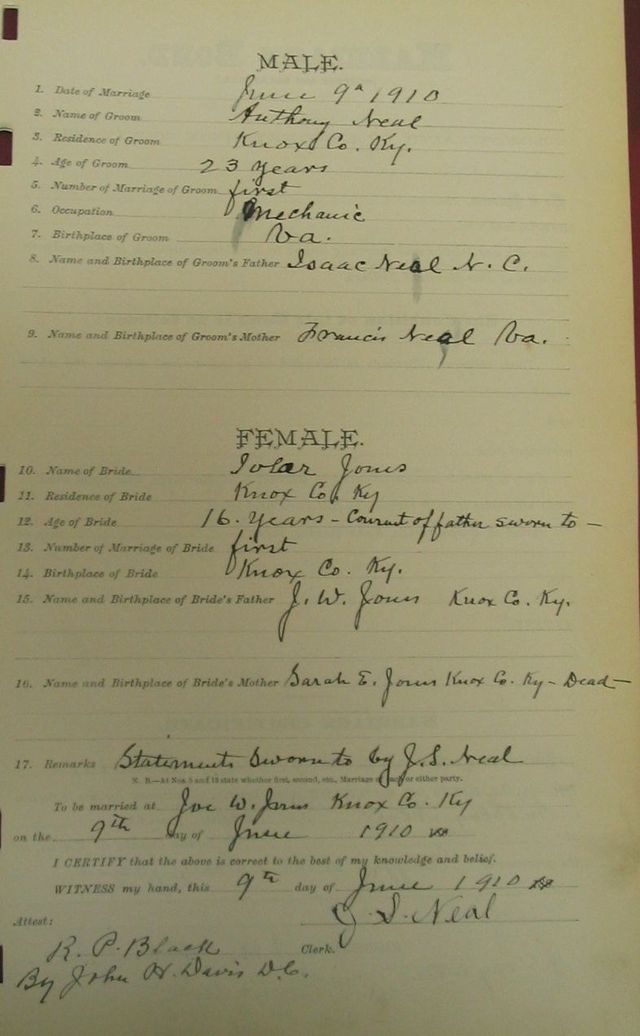 MALE.
1. Date of Marriage June 9th 1910
2. Name of Groom Anthony Neal
3. Residence of Groom Knox Co. Ky.
4. Age of Groom 23 years
5. Number of Marriage of Groom first
6. Occupation Mechanic
7. Birthplace of Groom Va.
8. Name and Birthplace of Groom's Father Isaac Neal N. C.
9. Name and Birthplace of Groom's Mother Francis Neal Va.
FEMALE.
10. Name of Bride Jones
11. Residence of Bride Knox Co. Ky
12. Age of Bride 16. years - Consent of father sworn to -
13. Number of Marriage of Bride first
14. Birthplace of Bride Knox Co. Ky.
15. Name and Birthplace of Bride's Father J. W. Jones Knox Co. Ky.
16. Name and Birthplace of Bride's Mother Sarah E. Jones Knox Co. Ky - Dead -
17. Remarks Statements Sworn to by J. S. Neal
N. B.—At Nos. 5 and 13 state whether first, second, etc., Marriage of each or either party.
To be married at Joe W. Jones Knox Co. Ky
on the 9th day of June 1910
I CERTIFY that the above is correct to the best of my knowledge and belief.
WITNESS my hand, this 9th day of June 1910
J. S. Neal
Attest:
R. P. Black Clerk.
By John H. Davis D.C.